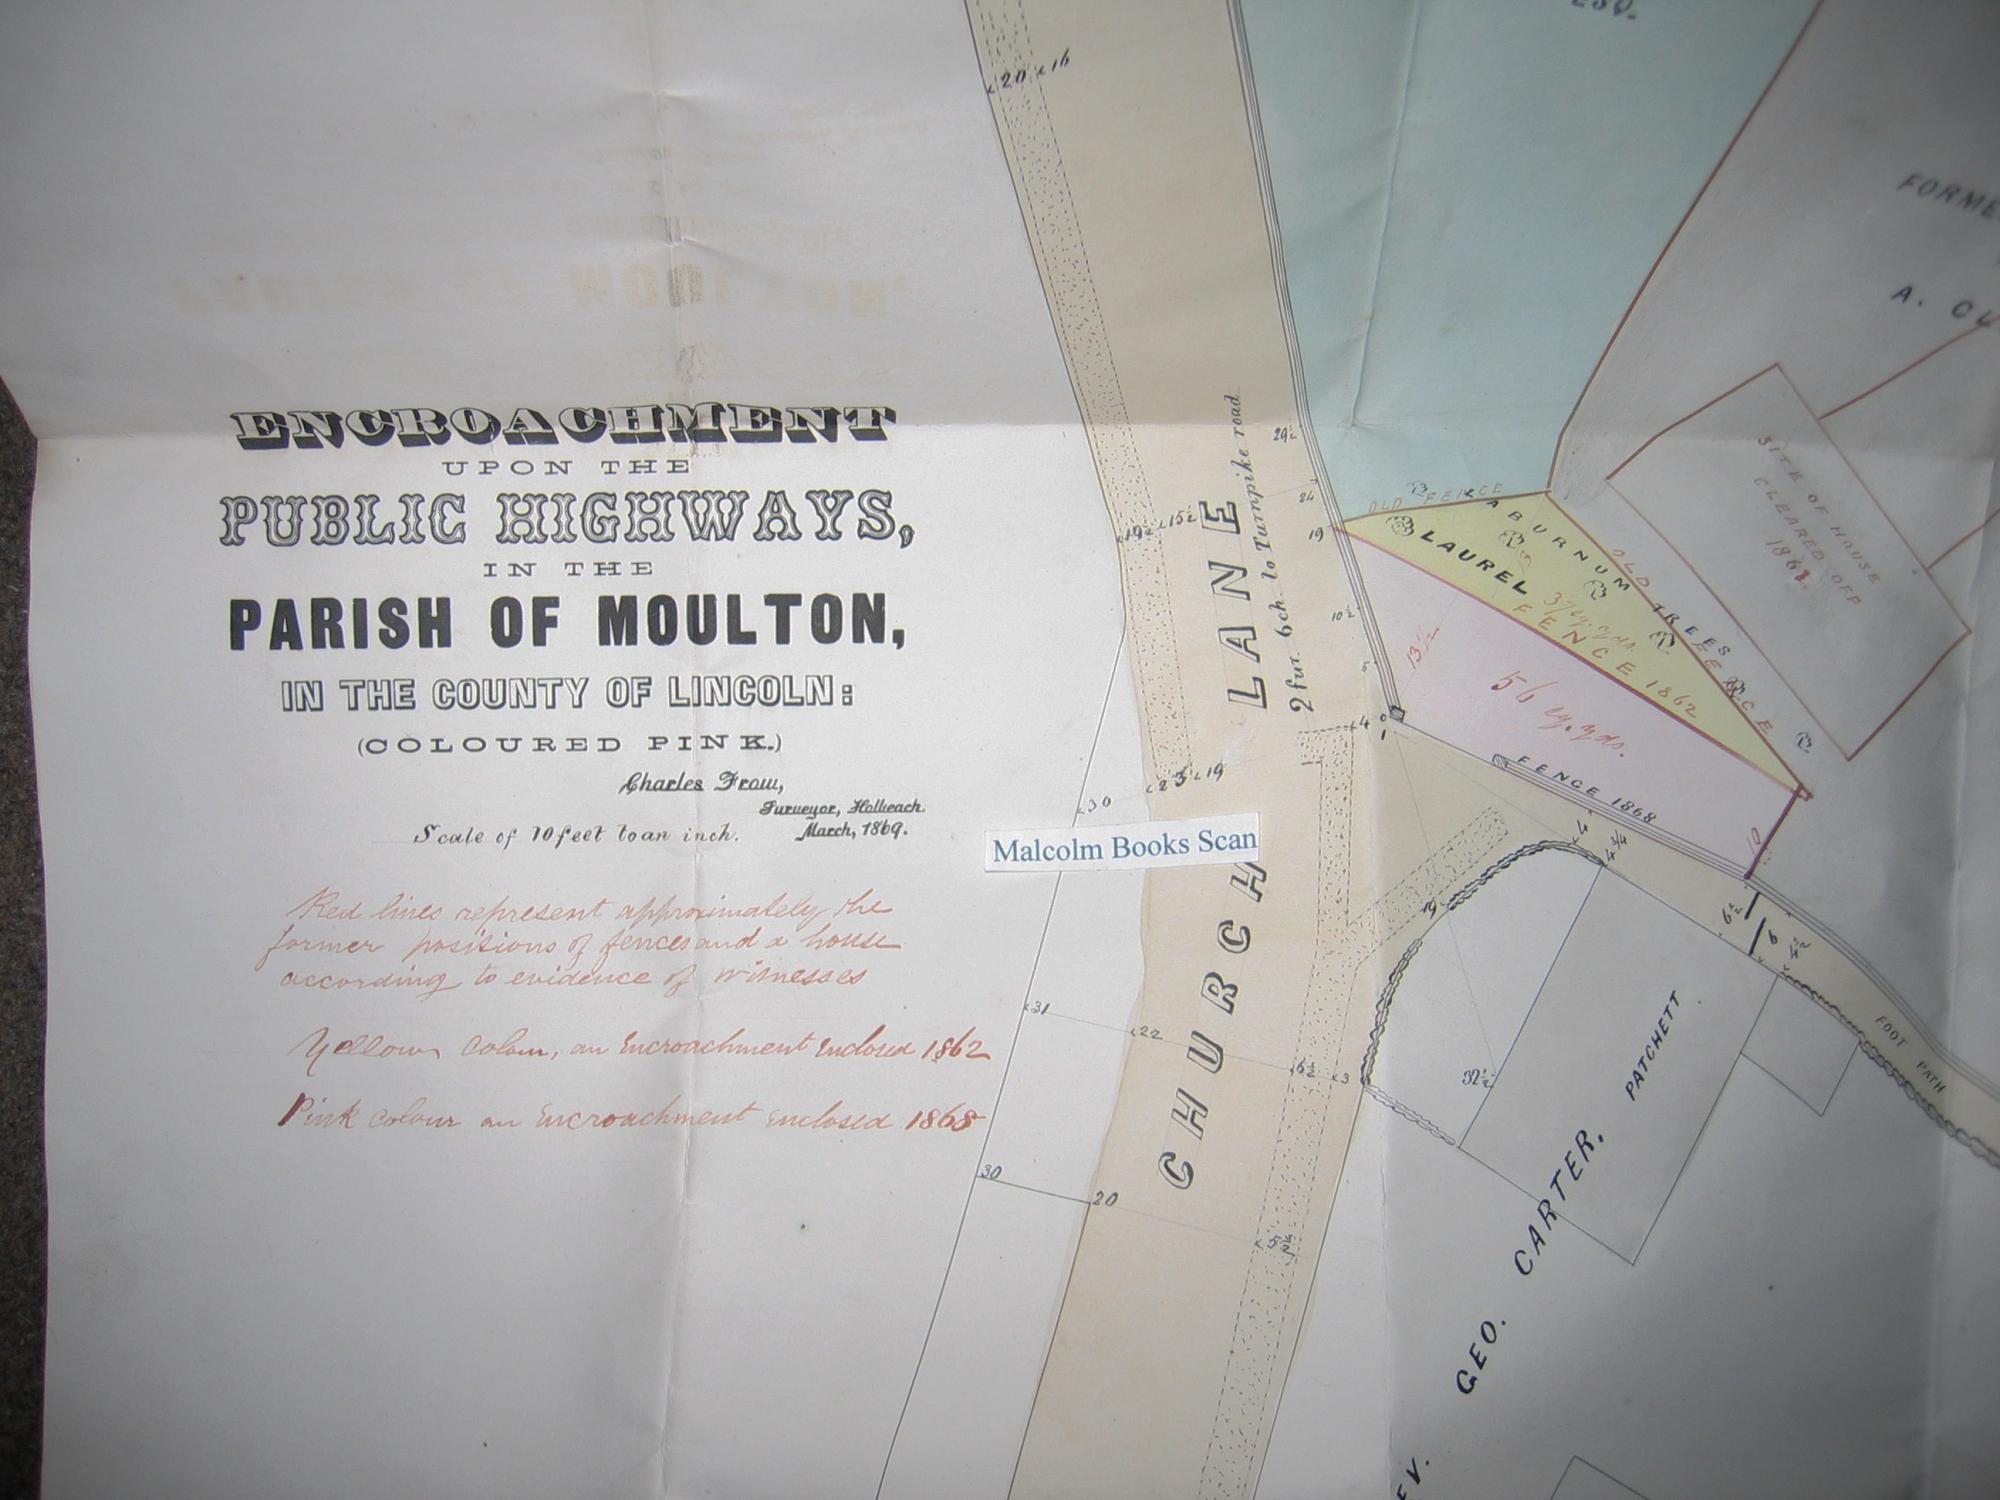 ENCROACHMENT
UPON THE
PUBLIC HIGHWAYS,
IN THE
PARISH OF MOULTON,
IN THE COUNTY OF LINCOLN:
(COLOURED PINK.)
Charles Frow,
Surveyor, Holbeach
March, 1869.
Scale of 10 feet to an inch.
Red lines represent approximately the
former positions of fences and a house
according to evidence of witnesses
Yellow Colour, an Encroachment Enclosed 1862
Pink Colour an Encroachment Enclosed 1868
Malcolm Books Scan
CHURCH LANE
2 fur. 6 ch. to Turnpike road
ESQ.
A.
SITE OF HOUSE
CLEARED OFF
OLD FENCE
LABURNUM TREES
OLD FENCE
LAUREL
37 sq. yds.
FENCE 1862
56 sq. yds.
FENCE 1868
13½
10
FOOT PATH
PATCHETT
GEO. CARTER.
20 16
19½ 15½
29½
24
19
10½
5
4 0
1
23 19
30
31
22
6½ 3
30
20
4
4¾
9
6½
6
4½
32½